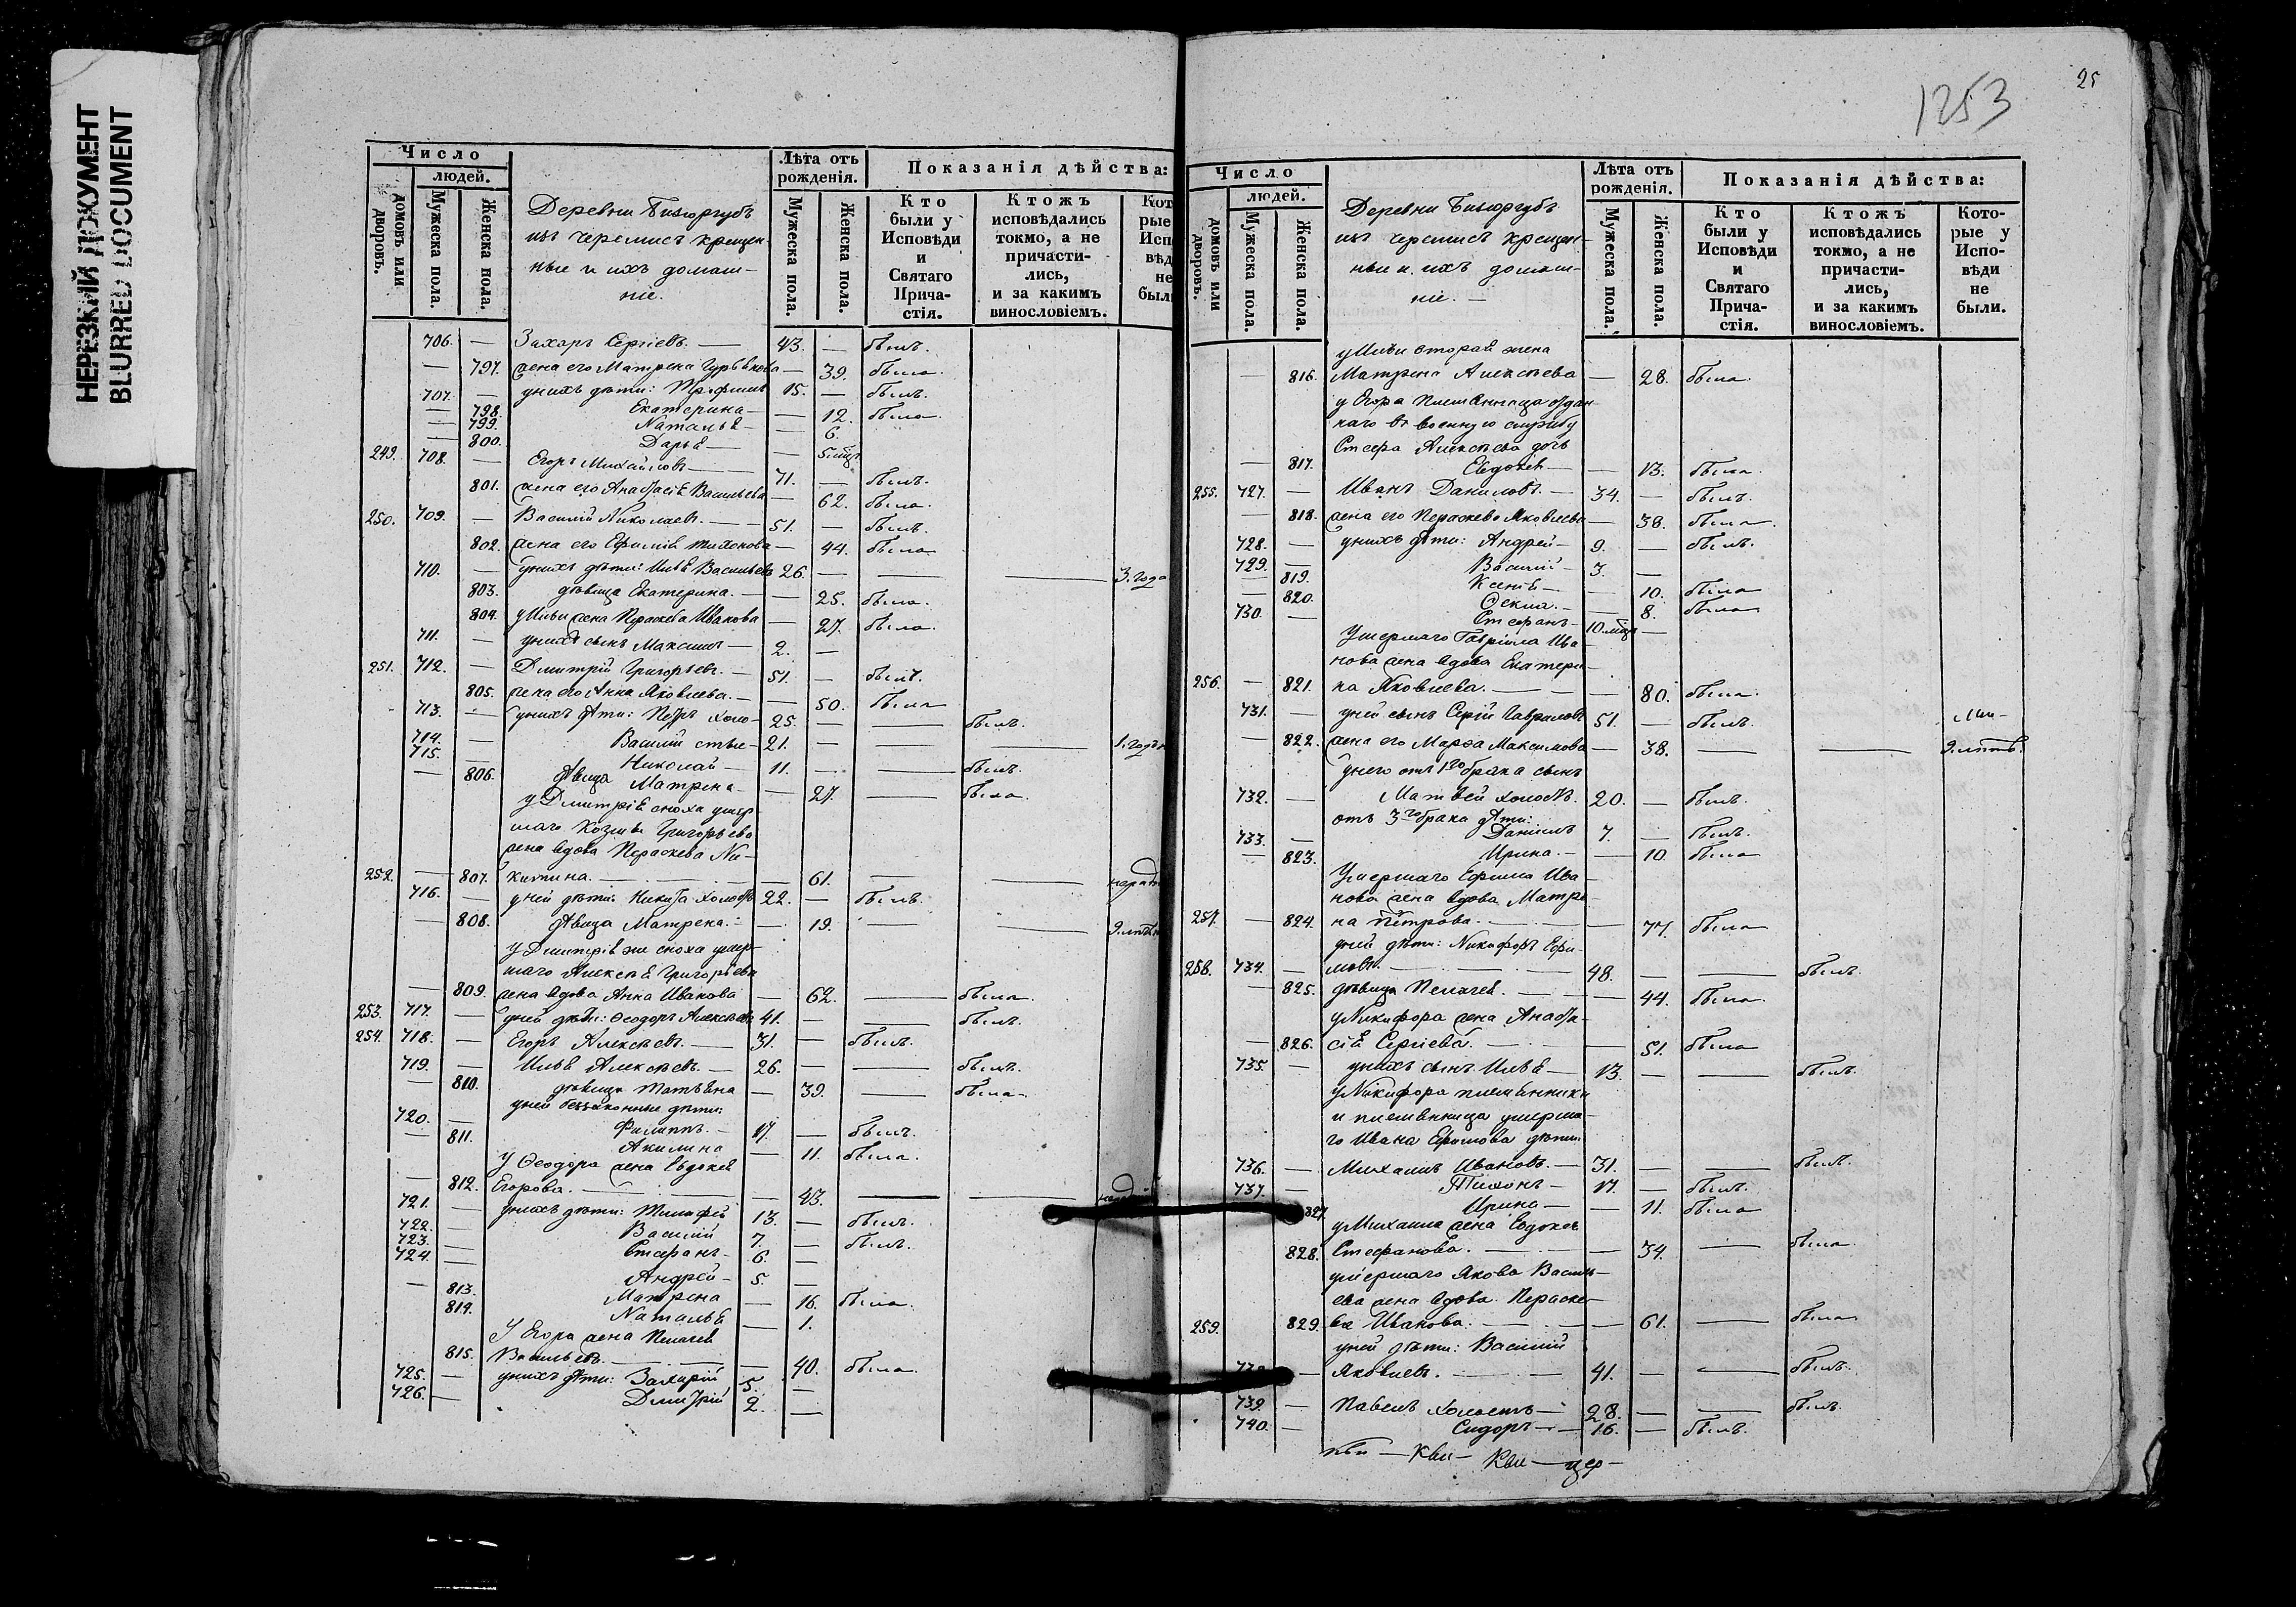 НЕРЕЗКИЙ ДОКУМЕНТ
BLURRED DOCUMENT
Число
людей.
домовъ или дворовъ.
Мужеска пола.
Женска пола.
Деревни
изъ черемисъ крещен-
ные и ихъ домаш-
ніе.
Лѣта отъ рожденія.
Мужеска пола.
Женска пола.
Показанія дѣйства:
Кто были у Исповѣди и Святаго Прича- стія.
Ктожъ исповѣдались токмо, а не причасти- лись, и за какимъ винословіемъ.
706. — Захаръ Сергіевъ. — 43. — былъ.
— 797. жена его Матрена — 39. была.
707. — у нихъ дѣти: 15. — былъ.
— 798. Екатерина — — 12. была.
— 799. Наталья — — 6.
— 800. Дарья — — 5 мѣц.
249. 708. — Егоръ Михайловъ — 71. — былъ.
801. жена его Анастасія Васильева — 62. была.
250. 709. — Василій Николаевъ. — 51. — былъ.
802. жена его Ефимія Тихонова — 44. была
710. — у нихъ дѣти: Илья Васильевъ 26. — — — 3. года
803. дѣвица Екатерина. — — 25. была.
804. у Ильи жена Параскева Иванова — 27. была.
711. — у нихъ сынъ Максимъ — 2. —
251. 712. — Дмитрій Григорьевъ. — 51. — былъ.
805. жена его Анна Яковлева. — — 50. была
713. — у нихъ дѣти: Петръ холо- 25. — — былъ.
714. — Василій 21. — — — 1. годъ
715. — Николай — 11. — — былъ.
— 806. дѣвица Матрена — — 27. — была.
у Дмитрія сноха умер-
шаго Козмы Григорьева
жена вдова Параскева Ни-
252. — 807. китина. — — 61. — —
716. — у ней дѣти: Никита холостъ 22. — былъ.
— 808. дѣвица Матрена. — — 19. — —
у Дмитрія же сноха умер-
шаго Алексѣя Григорьева
— 809. жена вдова Анна Иванова — 62. — была.
253. 717. — у ней дѣти: Ѳеодоръ Алексѣевъ 41. — — былъ.
254. 718. — Егоръ Алексѣевъ. — 31. — былъ.
719. — Илья Алексѣевъ. — 26. — — былъ.
— 810. дѣвица Татьяна — 39. — была
у ней беззаконные дѣти:
720. — Филиппъ. — 17. — былъ.
— 811. Акилина — 11. была.
у Ѳеодора жена Евдокія
— 812. Егорова. — — 43. — —
721. — у нихъ дѣти: Тимофей 13. — былъ.
722. — Василій 7. — былъ.
723. — Стефанъ — 6. —
724. — Андрей — 5. —
— 813. Матрена — 16. была.
814. Наталья — 1.
У Егора жена Пелагея
815. Васильева. — — 40. была
725. — у нихъ дѣти: Захарій 5. —
726. — Дмитрій 2. —
1253
25
Число
людей.
домовъ или дворовъ.
Мужеска пола.
Женска пола.
Деревни
изъ черемисъ крещен-
ные и ихъ домаш-
ніе. —
Лѣта отъ рожденія.
Мужеска пола.
Женска пола.
Показанія дѣйства:
Кто были у Исповѣди и Святаго Прича- стія.
Ктожъ исповѣдались токмо, а не причасти- лись, и за какимъ винословіемъ.
Кото- рые у Испо- вѣди не были.
у Ильи вторая жена
— 816. Матрена Алексѣева — 28. была.
у Егора племянница отдан-
наго въ военную службу
Алексѣева дочь
— 817. Евдокія — — 13. была.
255. 727. — Иванъ Даниловъ. — 34. — былъ.
— 818. жена его Параскева Яковлева — 38. была.
728. — у нихъ дѣти: Андрей — 9. — былъ.
729. — Василій — 3. —
— 819. Ксенія — — 10. была
— 820. Ѳекла. — — 8. была
730. — Стефанъ — 10 мѣц. —
Умершаго Гавріила Ива-
нова жена вдова Екатери-
256. — 821. на Яковлева. — — 80. была.
731. — у ней сынъ Сергій Гавриловъ 51. — былъ.
— 822. жена его Марѳа Максимова — 38. — — 9. лѣтъ.
у него отъ 1го брака сынъ
732. — Матвей холостъ. 20. — былъ.
отъ 3го брака дѣти:
733. — Даніилъ 7. — былъ.
— 823. Ирина. — — 10. была
Умершаго Ефима Ива-
нова жена вдова Матре-
257. — 824. на Петрова. — — 77. была
у ней дѣти: Никифоръ Ефи-
258. 734. — мовъ. — 48. — — былъ.
— 825. дѣвица Пелагея. — — 44. была.
у Никифора жена Анаста-
— 826. сія Сергіева. — — 51. была
735. — у нихъ сынъ Илья — 13. — — былъ.
у Никифора племянники
и племянница умерша-
го Ивана Ефимова дѣти
736. — Михаилъ Ивановъ. — 31. — — былъ.
737. — Тихонъ — 17. — былъ.
827. Ирина — — 11. была
у Михаила жена Евдокія
828. Стефанова. — — 34. — была.
умершаго Якова Василь-
ева жена вдова Параске-
259. 829. ва Иванова. — — 61. — была
у ней дѣти: Василій
738. — Яковлевъ. — 41. — — былъ.
739. — Павелъ холостъ — 28. — — былъ.
740. — Сидоръ — 16. — былъ.